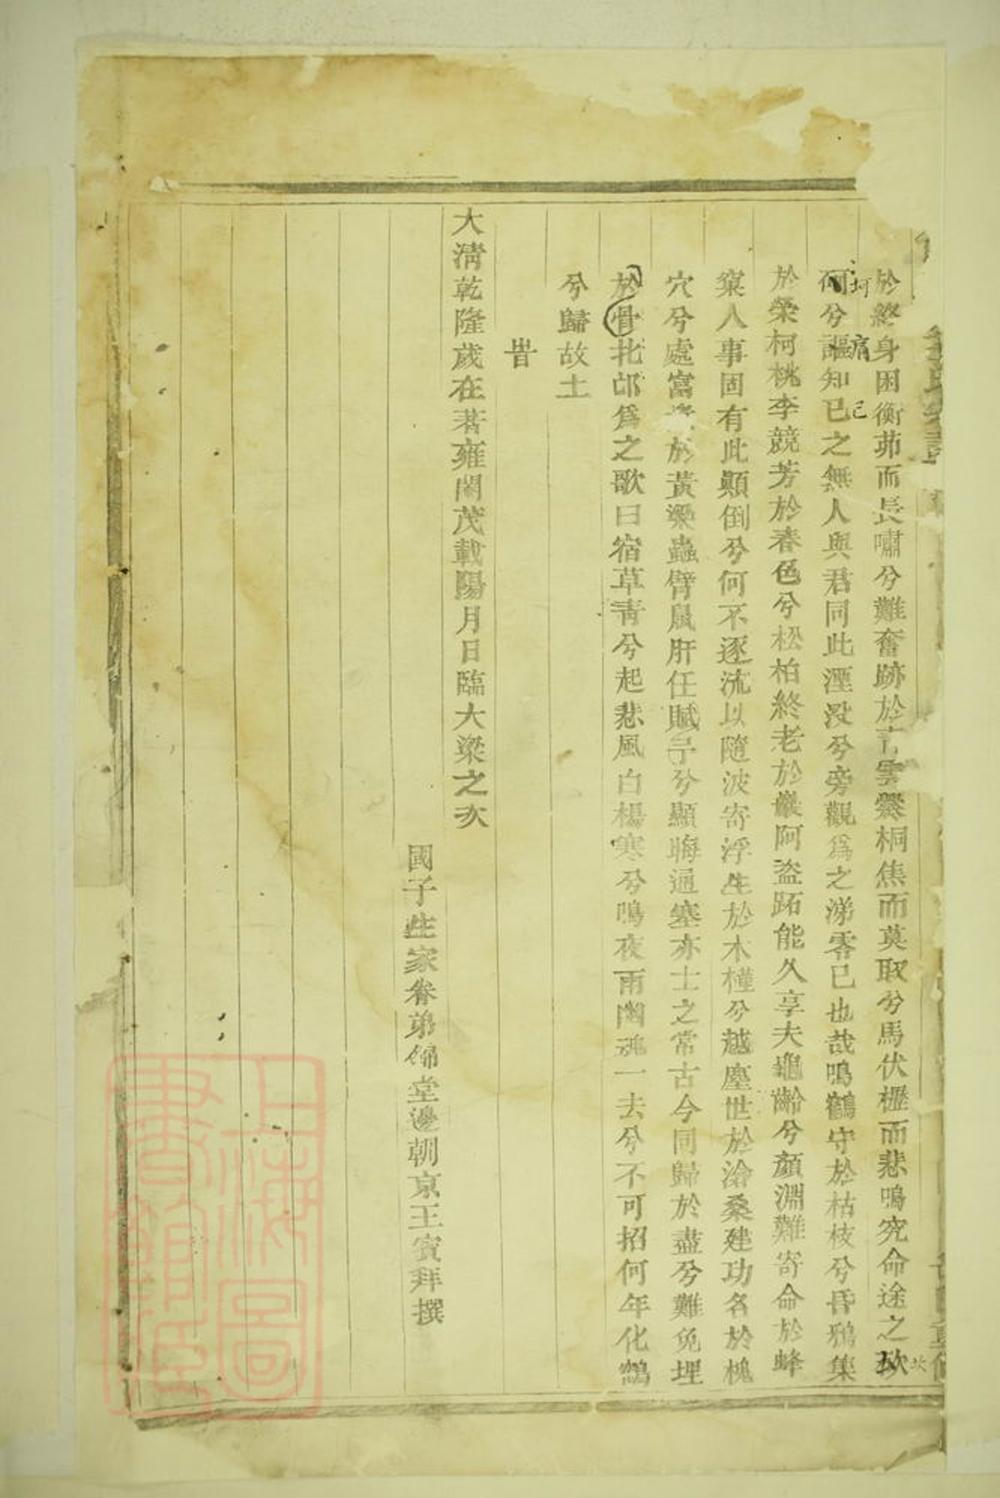 於終身困衡茆而長嘯兮難奮跡於雲爨桐焦而莫取兮馬伏櫪而悲鳴究命途之坎
坷兮謳知已之無人與君同此湮没兮旁觀爲之涕零已也哉鳴鶴守於枯枝兮昏鴉集
於榮柯桃李競芳於春色兮松柏終老於巖阿盜跖能久享夫龜齡兮顏淵難寄命於蜂
窠人事固有此顛倒兮何不逐流以隨波寄浮生於木槿兮越塵世於滄桑建功名於槐
穴兮處富於黃粱蟲臂鼠肝任賦予兮顯晦通塞亦士之常古今同歸於盡兮難免埋
於骨北邙爲之歌曰宿草靑兮起悲風白楊寒兮鳴夜雨幽魂一去兮不可招何年化鶴
兮歸故土
旹
大淸乾隆歲在著雍閹茂載陽月日臨大梁之次
國子生家眷弟堂邊朝京王賓拜撰
坷
痛
己
坎
上海圖
書館藏